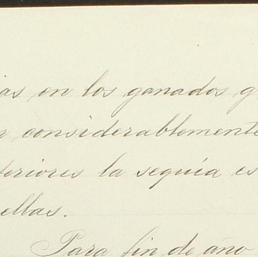 ias en los ganados q
r considerablemente
teriores la sequía es
ellas.
Para fin de año